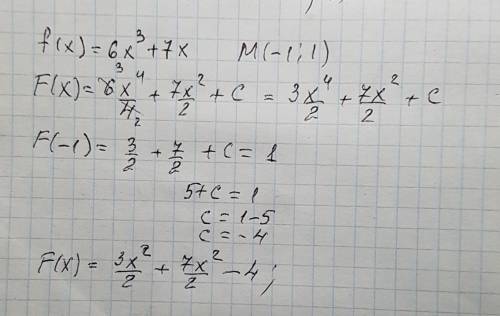 f(x) = 6x³ + 7x M(-1; 1)
F(x) = 6³x⁴/4₂ + 7x²/2 + C = 3x⁴/2 + 7x²/2 + C
F(-1) = 3/2 + 7/2 + C = 1
5+C = 1
C = 1-5
C = -4
F(x) = 3x²/2 + 7x²/2 - 4;